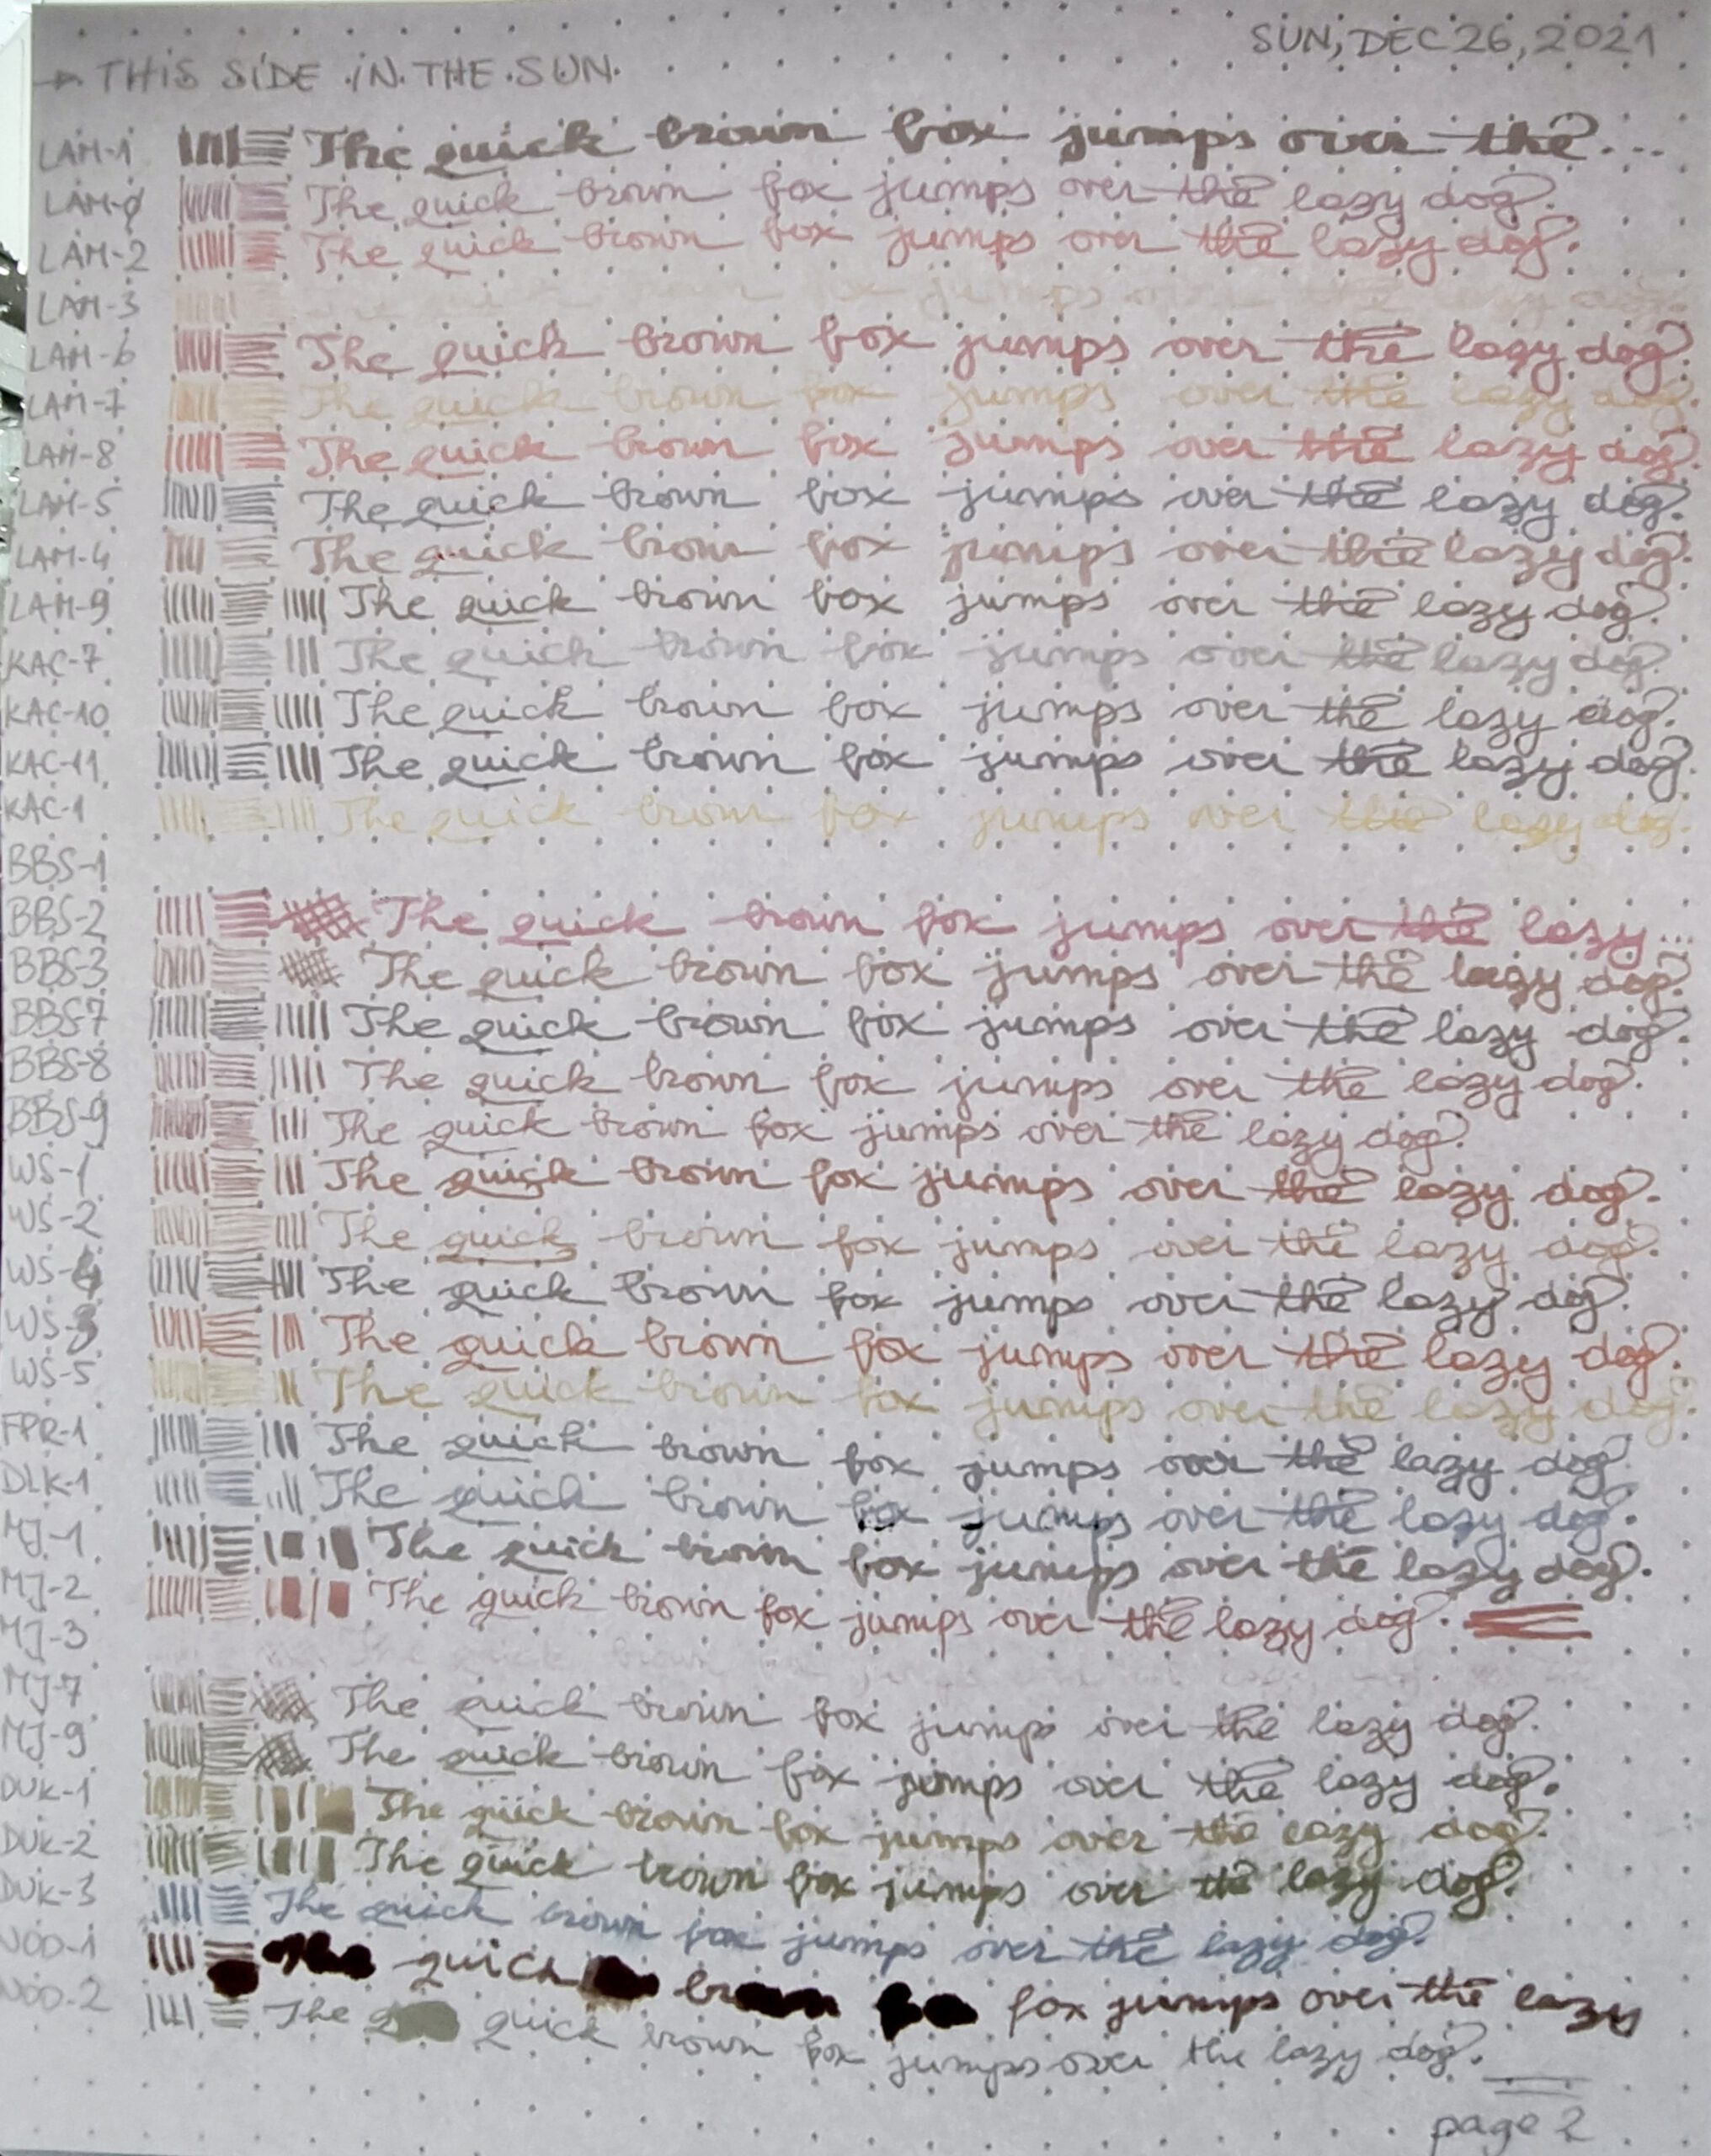 SUN, DEC 26, 2021
→ THIS SIDE IN THE SUN.
LAM-1 The quick brown fox jumps over the...
LAM-0 The quick brown fox jumps over the lazy dog.
LAM-2 The quick brown fox jumps over the lazy dog.
LAM-3 jumps
LAM-6 The quick brown fox jumps over the lazy dog.
LAM-7 The quick brown fox jumps over the lazy dog.
LAM-8 The quick brown fox jumps over the lazy dog.
LAM-5 The quick brown fox jumps over the lazy dog.
LAM-4 The quick brown fox jumps over the lazy dog.
LAM-9 The quick brown fox jumps over the lazy dog.
KAC-7 The quick brown fox jumps over the lazy dog.
KAC-10 The quick brown fox jumps over the lazy dog.
KAC-11 The quick brown fox jumps over the lazy dog.
KAC-1 The quick brown fox jumps over the lazy dog.
BBS-1
BBS-2 The quick brown fox jumps over the lazy...
BBS-3 The quick brown fox jumps over the lazy dog.
BBS-7 The quick brown fox jumps over the lazy dog.
BBS-8 The quick brown fox jumps over the lazy dog.
BBS-9 The quick brown fox jumps over the lazy dog.
WS-1 The quick brown fox jumps over the lazy dog.
WS-2 The quick brown fox jumps over the lazy dog.
WS-4 The quick brown fox jumps over the lazy dog.
WS-3 The quick brown fox jumps over the lazy dog.
WS-5 The quick brown fox jumps over the lazy dog.
FPR-1 The quick brown fox jumps over the lazy dog.
DLK-1 The quick brown fox jumps over the lazy dog.
MJ-1 The quick brown fox jumps over the lazy dog.
MJ-2 The quick brown fox jumps over the lazy dog.
MJ-3
MJ-7 The quick brown fox jumps over the lazy dog.
MJ-9 The quick brown fox jumps over the lazy dog.
DUK-1 The quick brown fox jumps over the lazy dog.
DUK-2 The quick brown fox jumps over the lazy dog.
DUK-3 The quick brown fox jumps over the lazy dog.
NOD-1 The quick brown fo fox jumps over the lazy
NOD-2 The q quick brown fox jumps over the lazy dog.
page 2